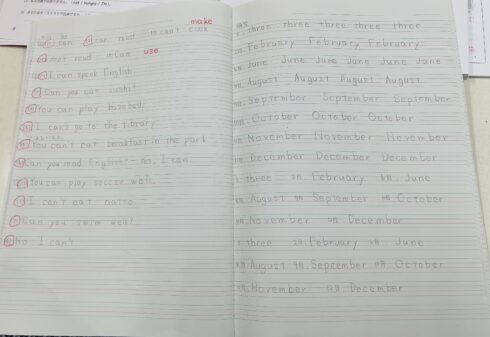 make
can can read can't cook
read can use
I can speak English
Can you eat sushi?
You can play baseball.
I can't go to the library.
You can't eat breakfast in the park
Can you read English? - No, I can.
You can play soccer well.
I can't eat natto.
Can you swim well?
No I can't
three three three three three
February February February
June June June June June
August August August August
September September September
October October October
November November November
December December December
three 2月 February 6月 June
August 9月 September 10月 October
November 12月 December
three 2月 February 6月 June
August 9月 September 10月 October
November 12月 December